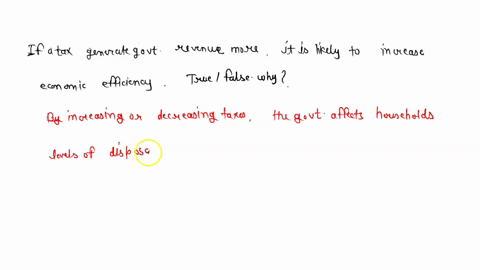 If a tax generate govt. revenue more, it is likely to increase
economic efficiency. True/false. why?
By increasing or decreasing taxes, the govt. affects households
levels of dispose